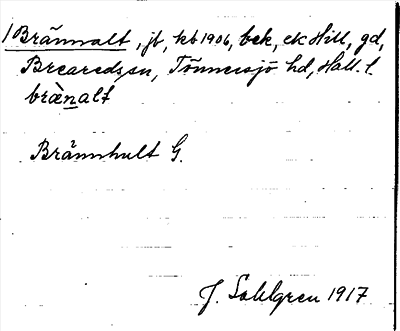 1 Brännalt, jb, kb 1906, bek, ek Hill, gd,
Breareds sn, Tönnersjö hd, Hall. l.
brænalt
Brännhult G.
J. Sahlgren 1917